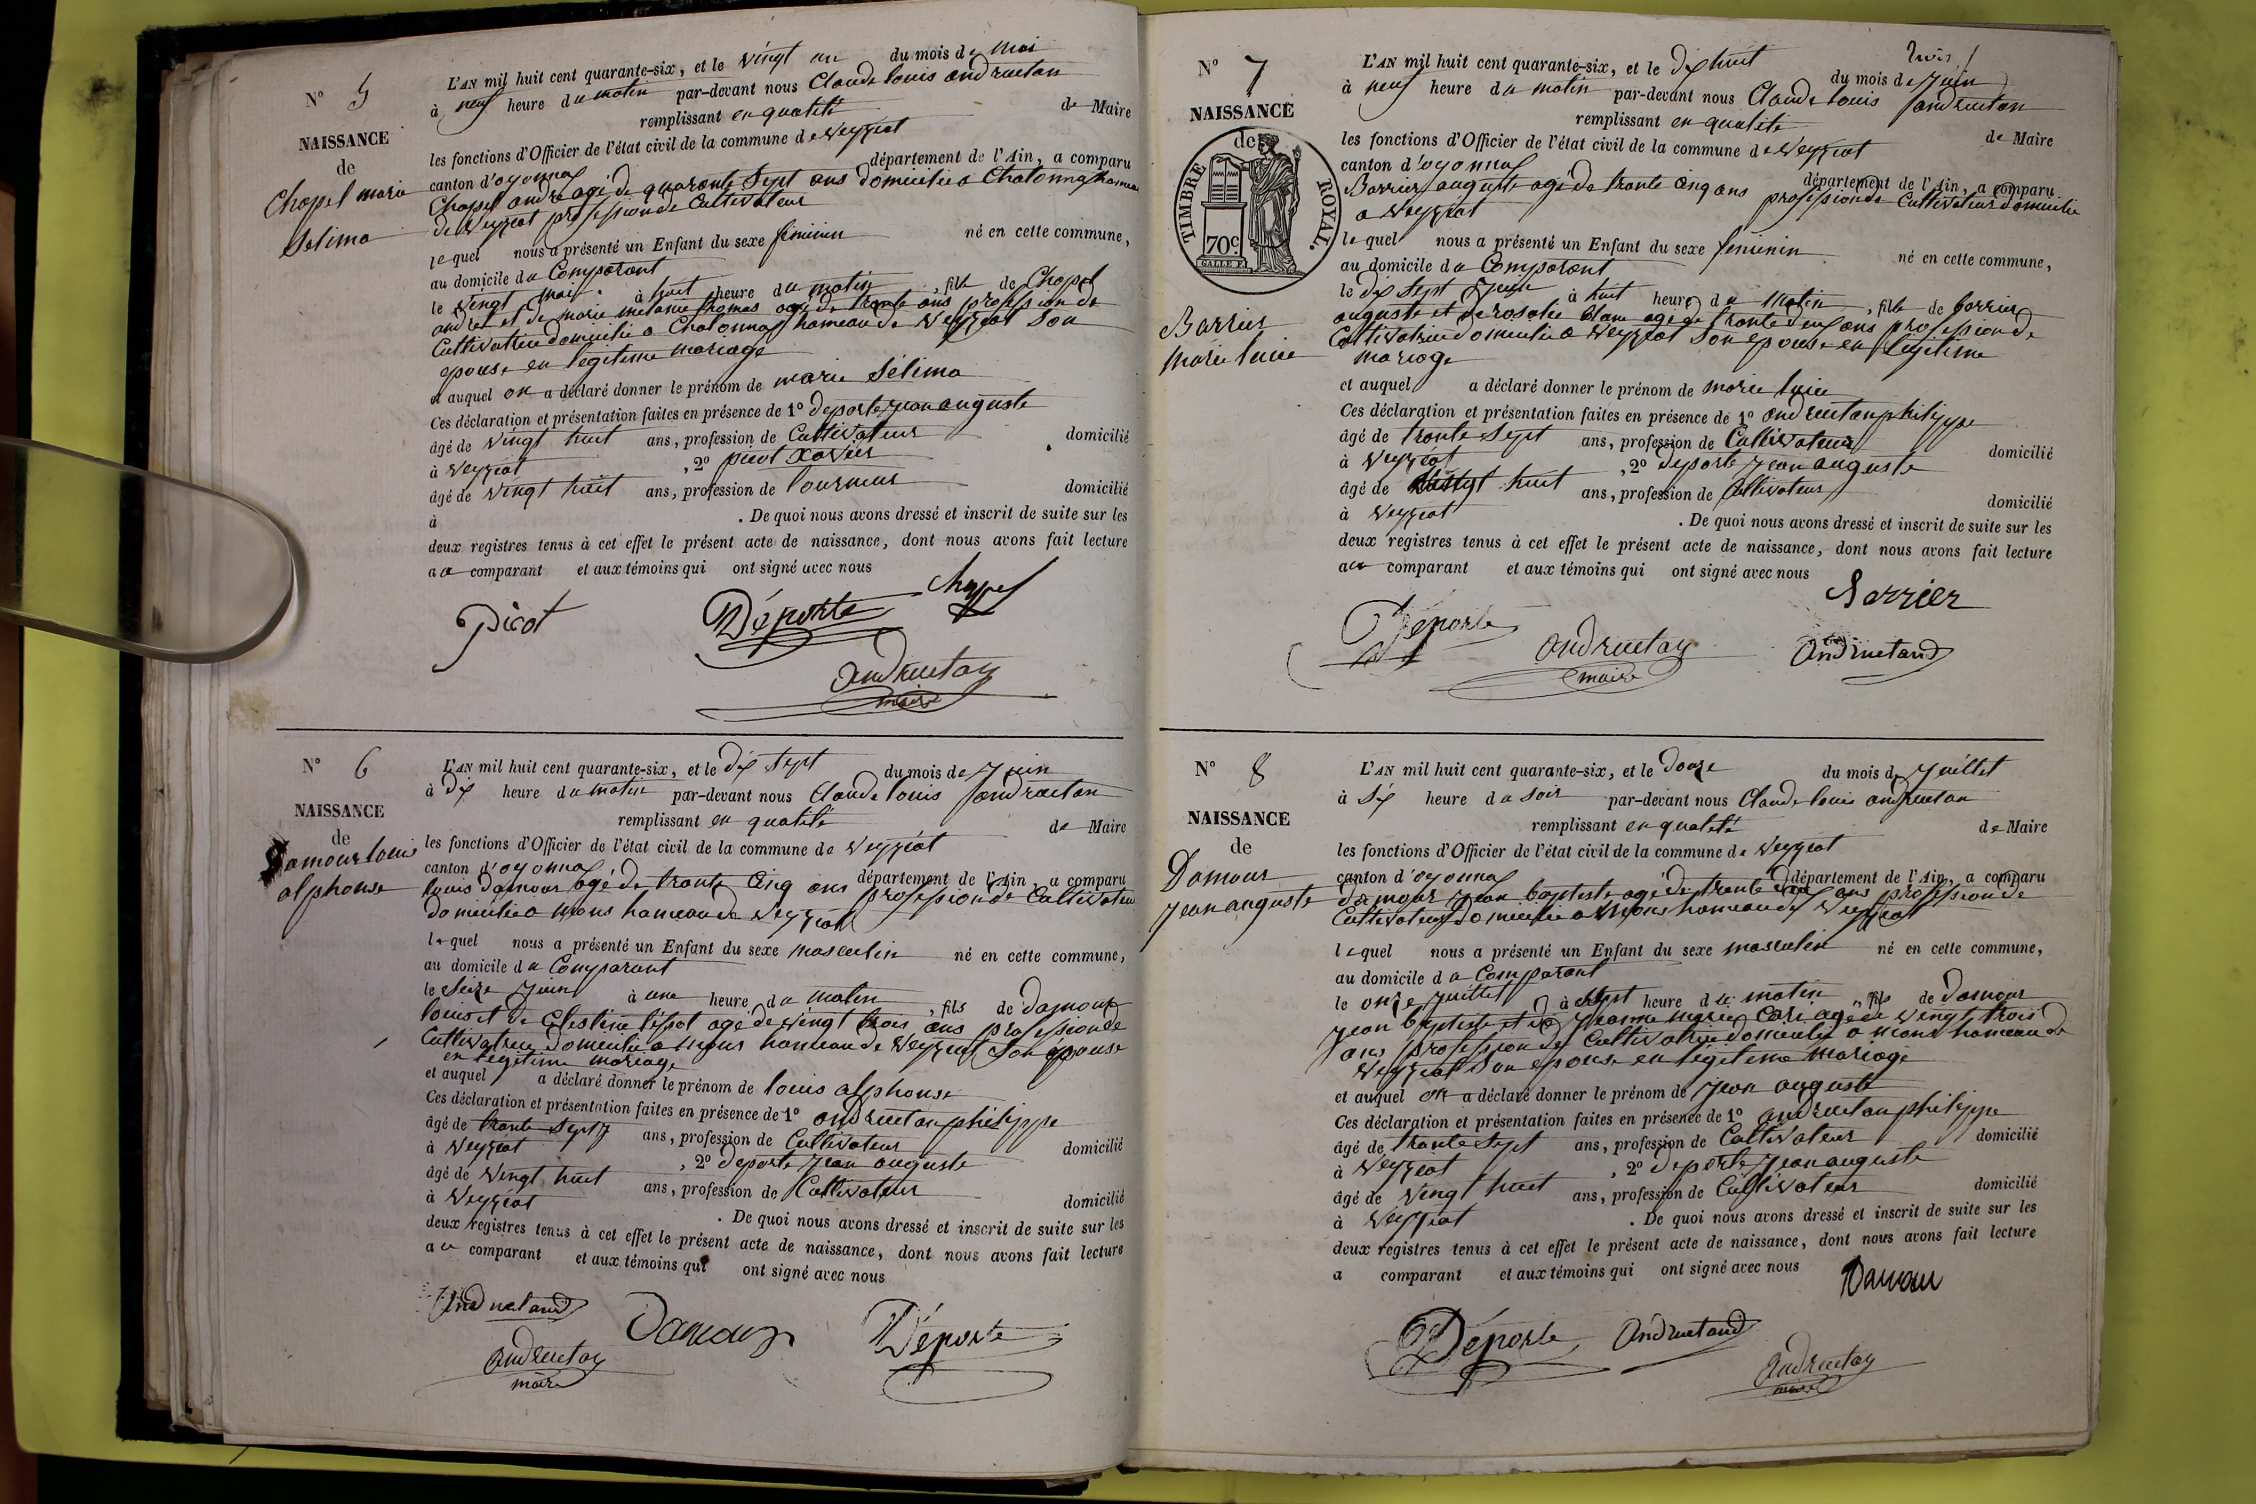 N° 5
NAISSANCE
de
Chapel marie
Sélima
L'AN mil huit cent quarante-six, et le vingt un du mois de mai
à neuf heure du matin par-devant nous Claude louis andruetan
remplissant en qualité de Maire
les fonctions d'Officier de l'état civil de la commune de Veyziat
canton d'oyonnax département de l'Ain, a comparu
Chapel andré agé de quarante Sept ans domicilié a Chatonnax hameau
de Veyziat profession de Cultivateur
lequel nous a présenté un Enfant du sexe féminin né en cette commune,
au domicile du Comparant
le vingt mai à huit heure du matin, fille de Chapel
andré et de marie mélanie thomas agé de trante ans profession de
Cultivatrice domicilié a Chatonnax hameau de Veyziat Son
épouse en légitime mariage
et auquel on a déclaré donner le prénom de marie Sélima
Ces déclaration et présentation faites en présence de 1° deporte jean auguste
âgé de vingt huit ans, profession de Cultivateur domicilié
à Veyziat, 2° picot xavier
âgé de vingt huit ans, profession de tourneur domicilié
à . De quoi nous avons dressé et inscrit de suite sur les
deux registres tenus à cet effet le présent acte de naissance, dont nous avons fait lecture
au comparant et aux témoins qui ont signé avec nous
Picot Déporte Chappel
andruetan
maire
N° 6
NAISSANCE
de
Damour louis
alphonse
L'AN mil huit cent quarante-six, et le dix sept du mois de juin
à dix heure du matin par-devant nous Claude louis andruetan
remplissant en qualité de Maire
les fonctions d'Officier de l'état civil de la commune de Veyziat
canton d'oyonnax département de l'Ain, a comparu
louis damour agé de trante Cinq ans profession de Cultivateur
domicilié a mons hameau de Veyziat
lequel nous a présenté un Enfant du sexe masculin né en cette commune,
au domicile du Comparant
le seize juin à une heure du matin, fils de damour
louis et de Célestine agé de vingt trois ans profession de
Cultivatrice domicilié a mons hameau de Veyziat Son épouse
en légitime mariage
et auquel a déclaré donner le prénom de louis alphonse
Ces déclaration et présentation faites en présence de 1° andruetan philippe
âgé de trante Sept ans, profession de Cultivateur domicilié
à Veyziat, 2° deporte jean auguste
âgé de vingt huit ans, profession de Cultivateur domicilié
à Veyziat. De quoi nous avons dressé et inscrit de suite sur les
deux registres tenus à cet effet le présent acte de naissance, dont nous avons fait lecture
au comparant et aux témoins qui ont signé avec nous
Andruetand Damour Déporte
andruetan
maire
N° 7
NAISSANCE
de
TIMBRE ROYAL.
70c.
Barrier
marie lucie
L'AN mil huit cent quarante-six, et le dix huit du mois de juin
à neuf heure du matin par-devant nous Claude louis andruetan
remplissant en qualité de Maire
les fonctions d'Officier de l'état civil de la commune de Veyziat
canton d'oyonnax département de l'Ain, a comparu
Barrier auguste agé de trante cinq ans profession de Cultivateur domicilié
a Veyziat
lequel nous a présenté un Enfant du sexe féminin né en cette commune,
au domicile du Comparant
le dix Sept juin à huit heure du matin, fille de barrier
auguste et de rosalie blanc agé de trante deux ans profession de
Cultivatrice domicilié a Veyziat Son épouse en légitime
mariage
et auquel a déclaré donner le prénom de marie lucie
Ces déclaration et présentation faites en présence de 1° andruetan philippe
âgé de trante Sept ans, profession de Cultivateur domicilié
à Veyziat, 2° deporte jean auguste
âgé de vingt huit ans, profession de Cultivateur domicilié
à Veyziat. De quoi nous avons dressé et inscrit de suite sur les
deux registres tenus à cet effet le présent acte de naissance, dont nous avons fait lecture
au comparant et aux témoins qui ont signé avec nous
Barrier
Déporte andruetan Andruetand
maire
N° 8
NAISSANCE
de
Damour
jean auguste
L'AN mil huit cent quarante-six, et le douze du mois de juillet
à Six heure du soir par-devant nous Claude louis andruetan
remplissant en qualité de Maire
les fonctions d'Officier de l'état civil de la commune de Veyziat
canton d'oyonnax département de l'Ain, a comparu
damour jean baptiste agé de trante deux ans profession de
Cultivateur domicilié a mons hameau de Veyziat
lequel nous a présenté un Enfant du sexe masculin né en cette commune,
au domicile du Comparant
le onze juillet à Sept heure du matin, fils de damour
jean baptiste et de jeanne marie agé de vingt trois
ans profession de Cultivatrice domicilié a mons hameau de
Veyziat Son épouse en légitime mariage
et auquel on a déclaré donner le prénom de jean auguste
Ces déclaration et présentation faites en présence de 1° andruetan philippe
âgé de trante Sept ans, profession de Cultivateur domicilié
à Veyziat, 2° deporte jean auguste
âgé de vingt huit ans, profession de Cultivateur domicilié
à Veyziat. De quoi nous avons dressé et inscrit de suite sur les
deux registres tenus à cet effet le présent acte de naissance, dont nous avons fait lecture
a comparant et aux témoins qui ont signé avec nous
Damour
Déporte Andruetand
andruetan
maire